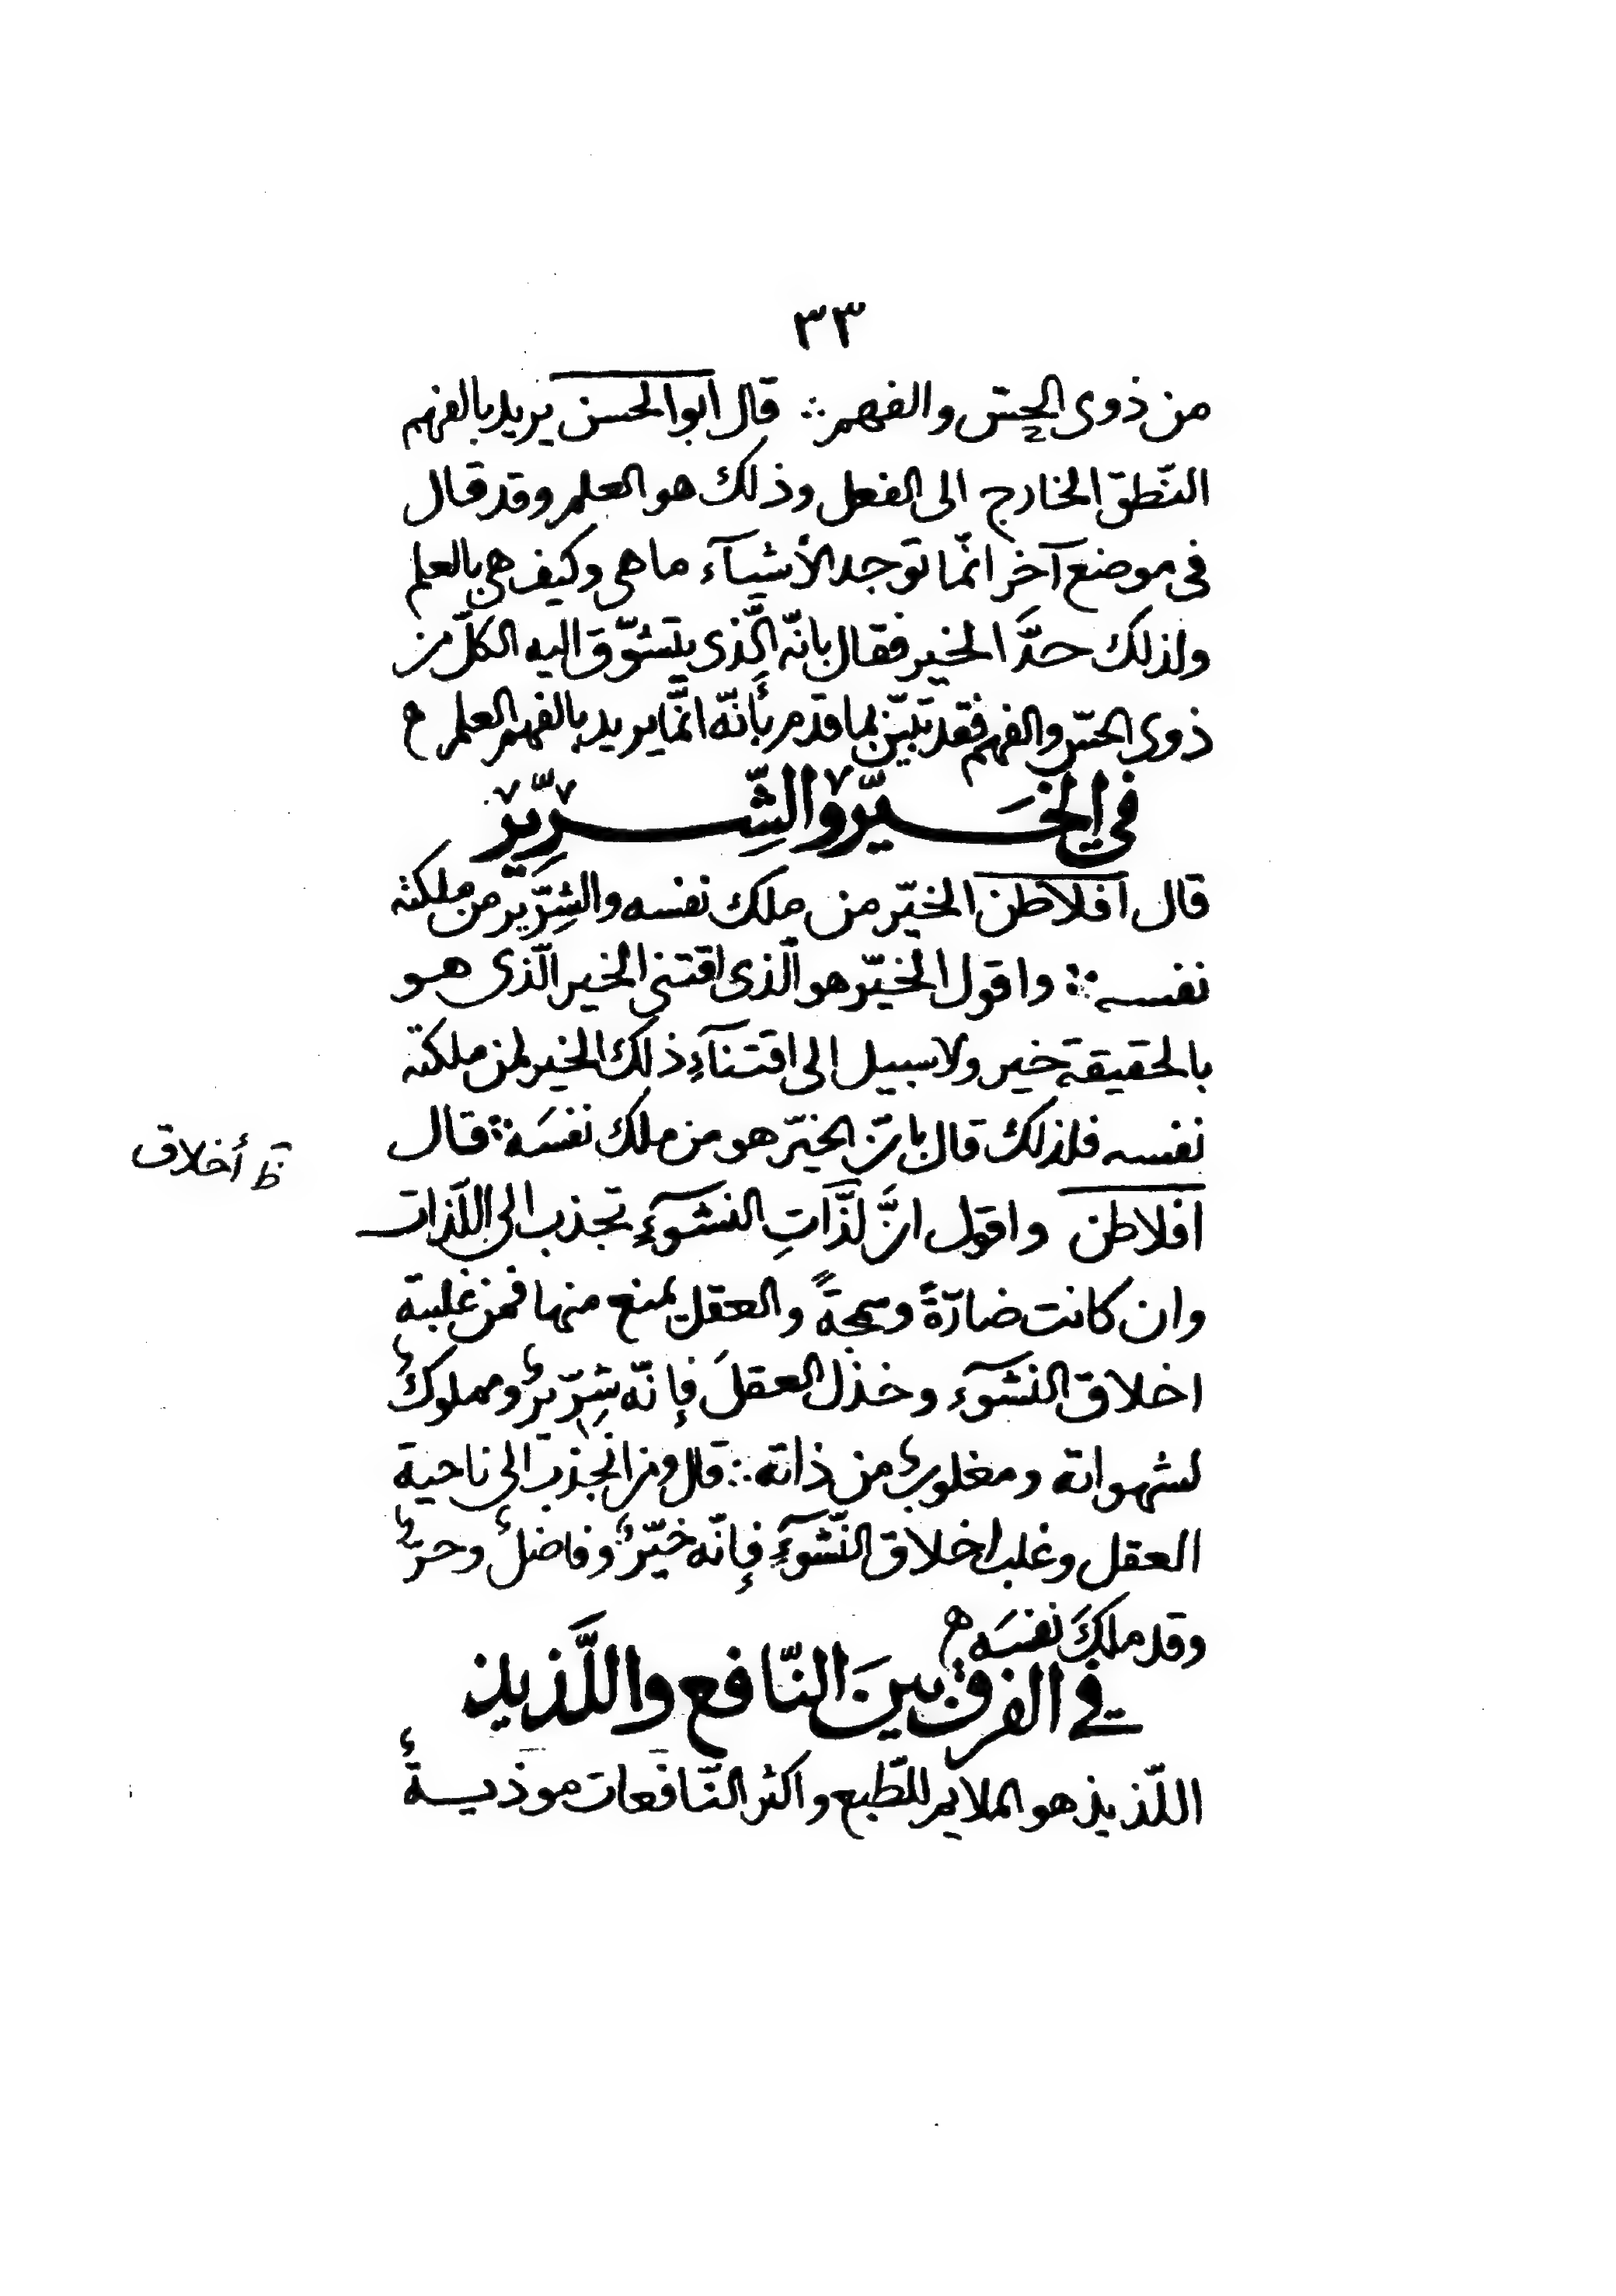 ٣٣
من ذوى الحسّ والفهم ∴ قال ابو الحسن يريد بالفهم
النّطق الخارج الى الفعل وذلك هو العلم وقد قال
فى موضع آخر انّما توجد الأشيآء ما هى وكيف هى بالعلم
ولذلك حدَّ الخير فقال بانّه الَّذى يتشوّق اليه الكلّ من
ذوى الحسّ والفهم فقد تبيّن بما قدم بأنّه انَّما يريد بالفهم العلم ه
في الخَيِّر والشِّرِّير
قال افلاطن الخيّر من ملك نفسه والشِرّير من ملكته
نفسه ∴ واقول الخيّر هو الّذى اقتنى الخير الّذى هو
بالحقيقة خير ولا سبيل الى اقتنآءِ ذلك الخير لمن ملكته
نفسه فلذلك قال بانّ الخيّر هو من ملك نفسَه ∴ قال
ظ أخلاق
افلاطن واقول انَّ لذَّاتِ النشوءِ تجذب الى اللَذات
وان كانت ضارّةً وسمجةً والعقل يمنع منها فمن غلبته
اخلاق النشوءِ وخذل العقلَ فإنّه شِرّيرٌ ومملوكٌ
لشهواته ومغلوبٌ من ذاته ∴ قال ومن انجذب الى ناحية
العقل وغلب اخلاق النّشوءِ فإنّه خيّرٌ وفاضلٌ وحرٌّ
وقد ملكَ نفسَه ه
في الفرق بينَ النّافع واللَّذيذ
اللّذيذ هو الملايم للطّبع واكثر النّافعات موذيةٌ